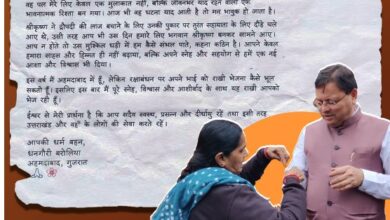 वह पल मेरे लिए केवल एक मुलाकात नहीं, बल्कि जीवनभर याद रहने वाला एक
भावनात्मक रिश्ता बन गया। आज भी वह घटना याद आती है तो मन भावुक हो जाता है।
श्रीकृष्ण ने द्रौपदी की लाज बचाने के लिए उनकी पुकार पर तुरंत सहायता के लिए दौड़े चले
आए थे, उसी तरह आप भी उस दिन हमारे लिए भगवान श्रीकृष्ण बनकर सामने आए।
आप न होते तो उस मुश्किल घड़ी में हम कैसे संभल पाते, कहना कठिन है। आपने केवल
हमारा साहस और हिम्मत ही नहीं बढ़ाया, बल्कि अपने स्नेह और सहयोग से हमें एक नई
आशा और विश्वास भी दिया।
इस वर्ष मैं अहमदाबाद में हूँ, लेकिन रक्षाबंधन पर अपने भाई को राखी भेजना कैसे भूल
सकती हूँ। इसलिए इस बार मैं पूरे स्नेह, विश्वास और आशीर्वाद के साथ यह राखी आपको
भेज रही हूँ।
ईश्वर से मेरी प्रार्थना है कि आप सदैव स्वस्थ, प्रसन्न और दीर्घायु रहें तथा इसी तरह
उत्तराखंड और वहाँ के लोगों की सेवा करते रहें।
आपकी धर्म बहन,
धनगौरी बरोलिया
अहमदाबाद, गुजरात